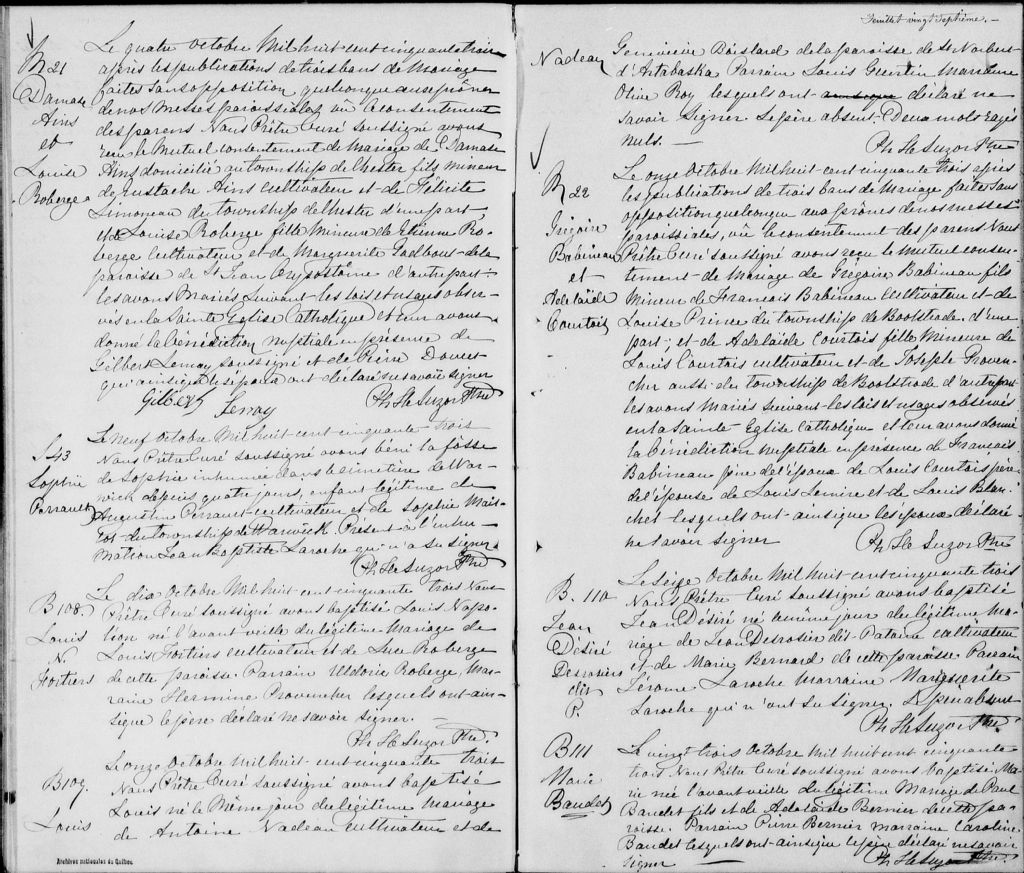 M 21
Damase
Ains
et
Louise
Roberge
Le quatre octobre Mil huit cent cinquante trois
après les publications de trois bans de Mariage
faites sans opposition quelconque aux prônes
de nos Messes paroissiales vû le consentement
des parens Nous Prêtre Curé soussigné avons
reçu le Mutuel consentement de Mariage de Damase
Ains domicilié au township de Chester fils mineur
de Eustache Ains cultivateur et de Félicité
Simoneau du township de Chester d'une part,
et de Louise Roberge fille Mineure de Etienne Ro-
berge Cultivateur et de Marguerite de la
paroisse de St Jean Chrysostôme d'autre part
les avons Mariés suivant les lois et usages obser-
vés en la Sainte Eglise Catholique et leur avons
donné la bénédiction nuptiale en présence de
Gilbert Lemay soussigné et de Pierre
qui ainsi que les époux ont déclaré ne savoir signer
Gilbert Lemay Ph. H. Suzor Ptre
S 43
Sophie
Perrault
Le neuf octobre Mil huit cent cinquante trois
Nous Prêtre Curé soussigné avons béni la fosse
de Sophie inhumée dans le cimetière de War-
wick depuis quatre jours, enfant légitime de
Augustin Perrault cultivateur et de Sophie
du township de Warwick. Présent à l'inhu-
mation Jean Baptiste Laroche qui n'a su signer
Ph. H. Suzor Ptre
B 108.
Louis
N.
Fortiers
Le dix Octobre Mil huit cent cinquante trois Nous
Prêtre Curé soussigné avons baptisé Louis Napo-
léon né l'avant veille du légitime Mariage de
Louis Fortiers cultivateur et de Luce Roberge
de cette paroisse. Parrain Uldoric Roberge, Mar-
raine Hermine Provencher lesquels ont ain-
si que le père déclaré ne savoir signer.
Ph. H. Suzor Ptre.
B 109.
Louis
Le onze Octobre Mil huit cent cinquante trois
Nous Prêtre Curé soussigné avons baptisé
Louis né le Même jour du légitime Mariage
de Antoine Nadeau cultivateur et de
Archives nationales du Québec
Feuillet vingt septième.
Nadeau
Geneviève Boislard de la paroisse de St Norbert
d'Artabaska Parrain Louis Guertin Marraine
Olive Roy lesquels ont déclaré ne
savoir signer le père absent. Deux mots rayés
nuls.
Ph. H. Suzor Ptre
M 22
Grégoire
Babineau
et
Adelaïde
Courtois
Le onze Octobre Mil huit cent cinquante trois après
les publications de trois bans de Mariage faites sans
opposition quelconque aux prônes de nos messes
paroissiales, vû le consentement des parens Nous
Prêtre Curé soussigné avons reçu le Mutuel consen-
tement de Mariage de Grégoire Babineau fils
Mineur de Francois Babineau cultivateur et de
Louise Prince du township de Boolstrode d'une
part, et de Adelaide Courtois fille Mineure de
Louis Courtois cultivateur et de Josephte Proven-
cher aussi du township de Boolstrode d'autre part
les avons Mariés suivant les lois et usages observés
en la Sainte Eglise Catholique et leur avons donné
la bénédiction nuptiale en présence de François
Babineau père de l'époux de Louis Courtois père
de l'épouse de Louis Lemire et de Louis Blan-
chet lesquels ont ainsi que les époux déclaré
ne savoir signer
Ph. H. Suzor Ptre
B. 110
Jean
Désiré
Desrosiers
dit
P.
Le seize Octobre Mil huit cent cinquante trois
Nous Prêtre Curé soussigné avons baptisé
Jean Désiré né ce même jour du légitime Ma-
riage de Jean Desrosier dit Pataire cultivateur
et de Marie Bernard de cette paroisse Parrain
Jérome Laroche Marraine Marguerite
Laroche qui n'ont su signer. Le père absent
Ph. H. Suzor Ptre.
B 111
Marie
Baudet
Le vingt trois Octobre Mil huit cent cinquante
trois Nous Prêtre Curé soussigné avons baptisé Ma-
rie né l'avant veille du légitime Mariage de Paul
Baudet fils et de Adelaïde Bernier de cette pa-
roisse. Parrain Pierre Bernier Marraine Caroline
Baudet lesquels ont ainsi que le père déclaré ne savoir
signer
Ph. H. Suzor Ptre.